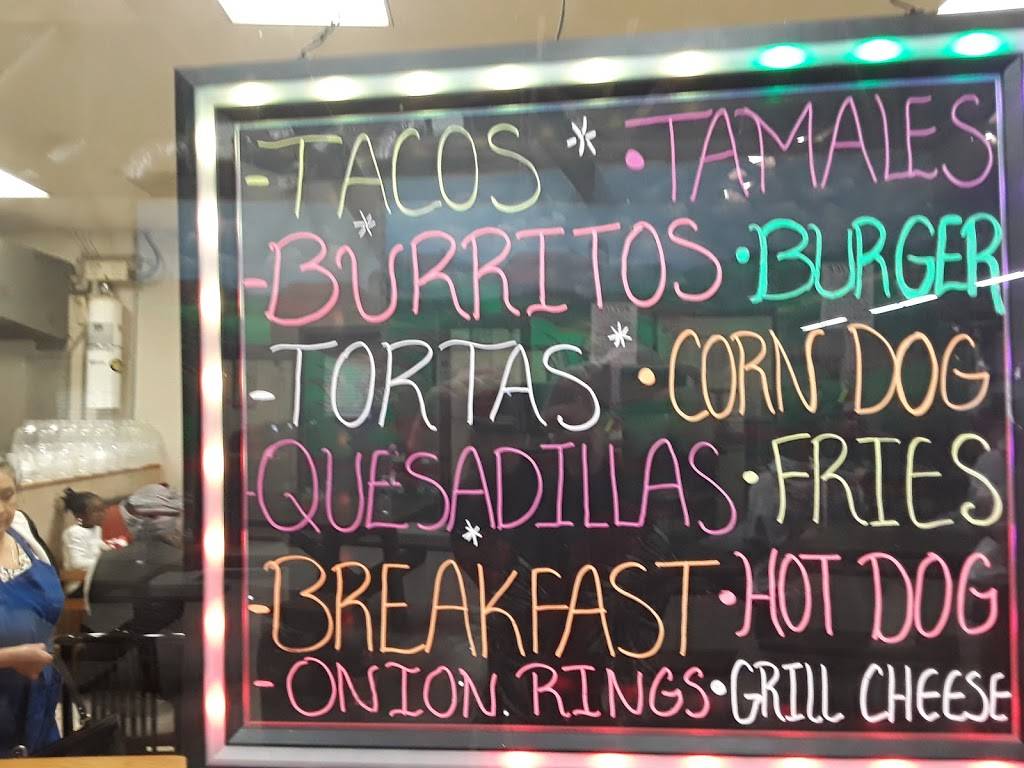 - TACOS * • TAMALES
- BURRITOS • BURGER
- TORTAS * • CORN DOG
- QUESADILLAS • FRIES
- BREAKFAST • HOT DOG
- ONION. RINGS • GRILL CHEESE